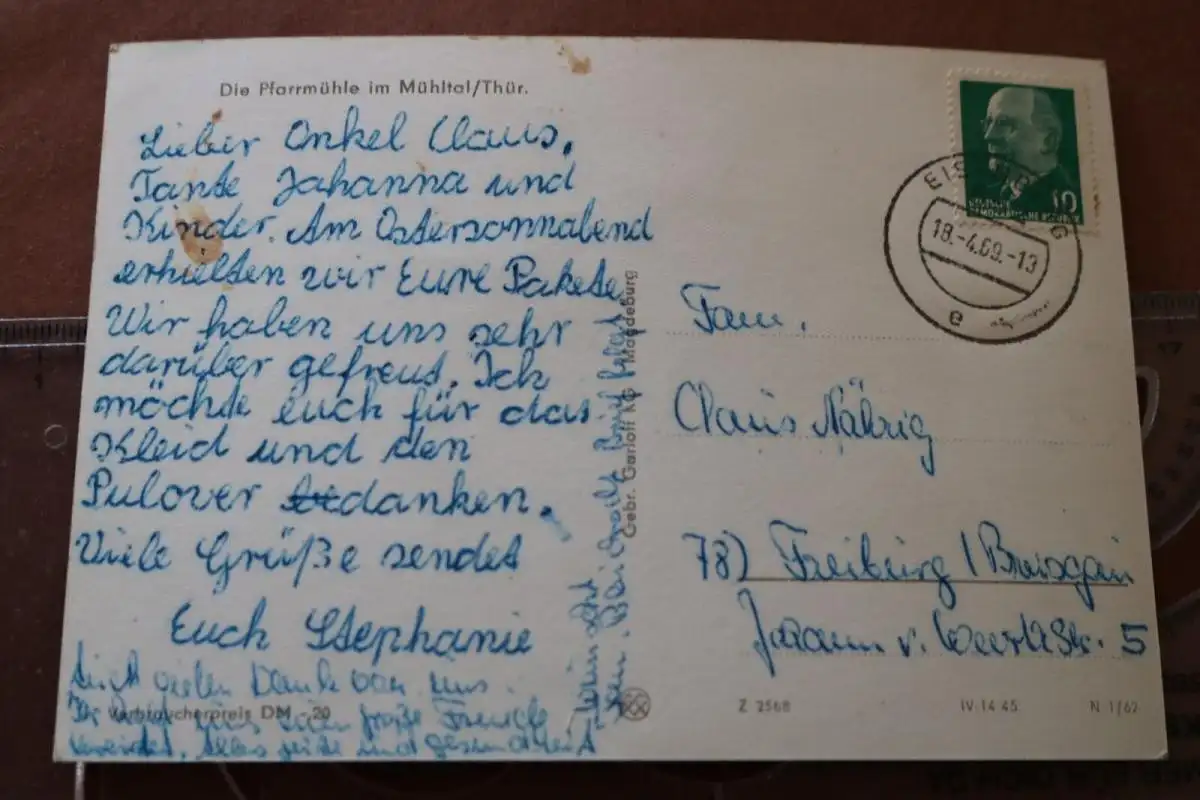 Die Pfarrmühle im Mühltal/Thür.
Lieber Onkel Claus,
Tante Jahanna und
Kinder. Am Ostersonnabend
erhielten wir Eure Pakete
Wir haben uns sehr
darüber gefreut. Ich
möchte euch für das
Kleid und den
Pulover bedanken.
Viele Grüße sendet
Euch Stephanie
vielen Dank von uns.
große Freude
alles gute und gesundheit
wünscht
Brief folgt
Verbraucherpreis DM -.20
Gebr. Garloff KG Magdeburg
DEUTSCHE
DEMOKRATISCHE REPUBLIK
10
EIS
G
18.-4.69.-13
e
Fam.
Claus Nährig
78) Freiburg / Breisgau
v. Str. 5
Z 2568
IV-14-45
N 1/62
1
17